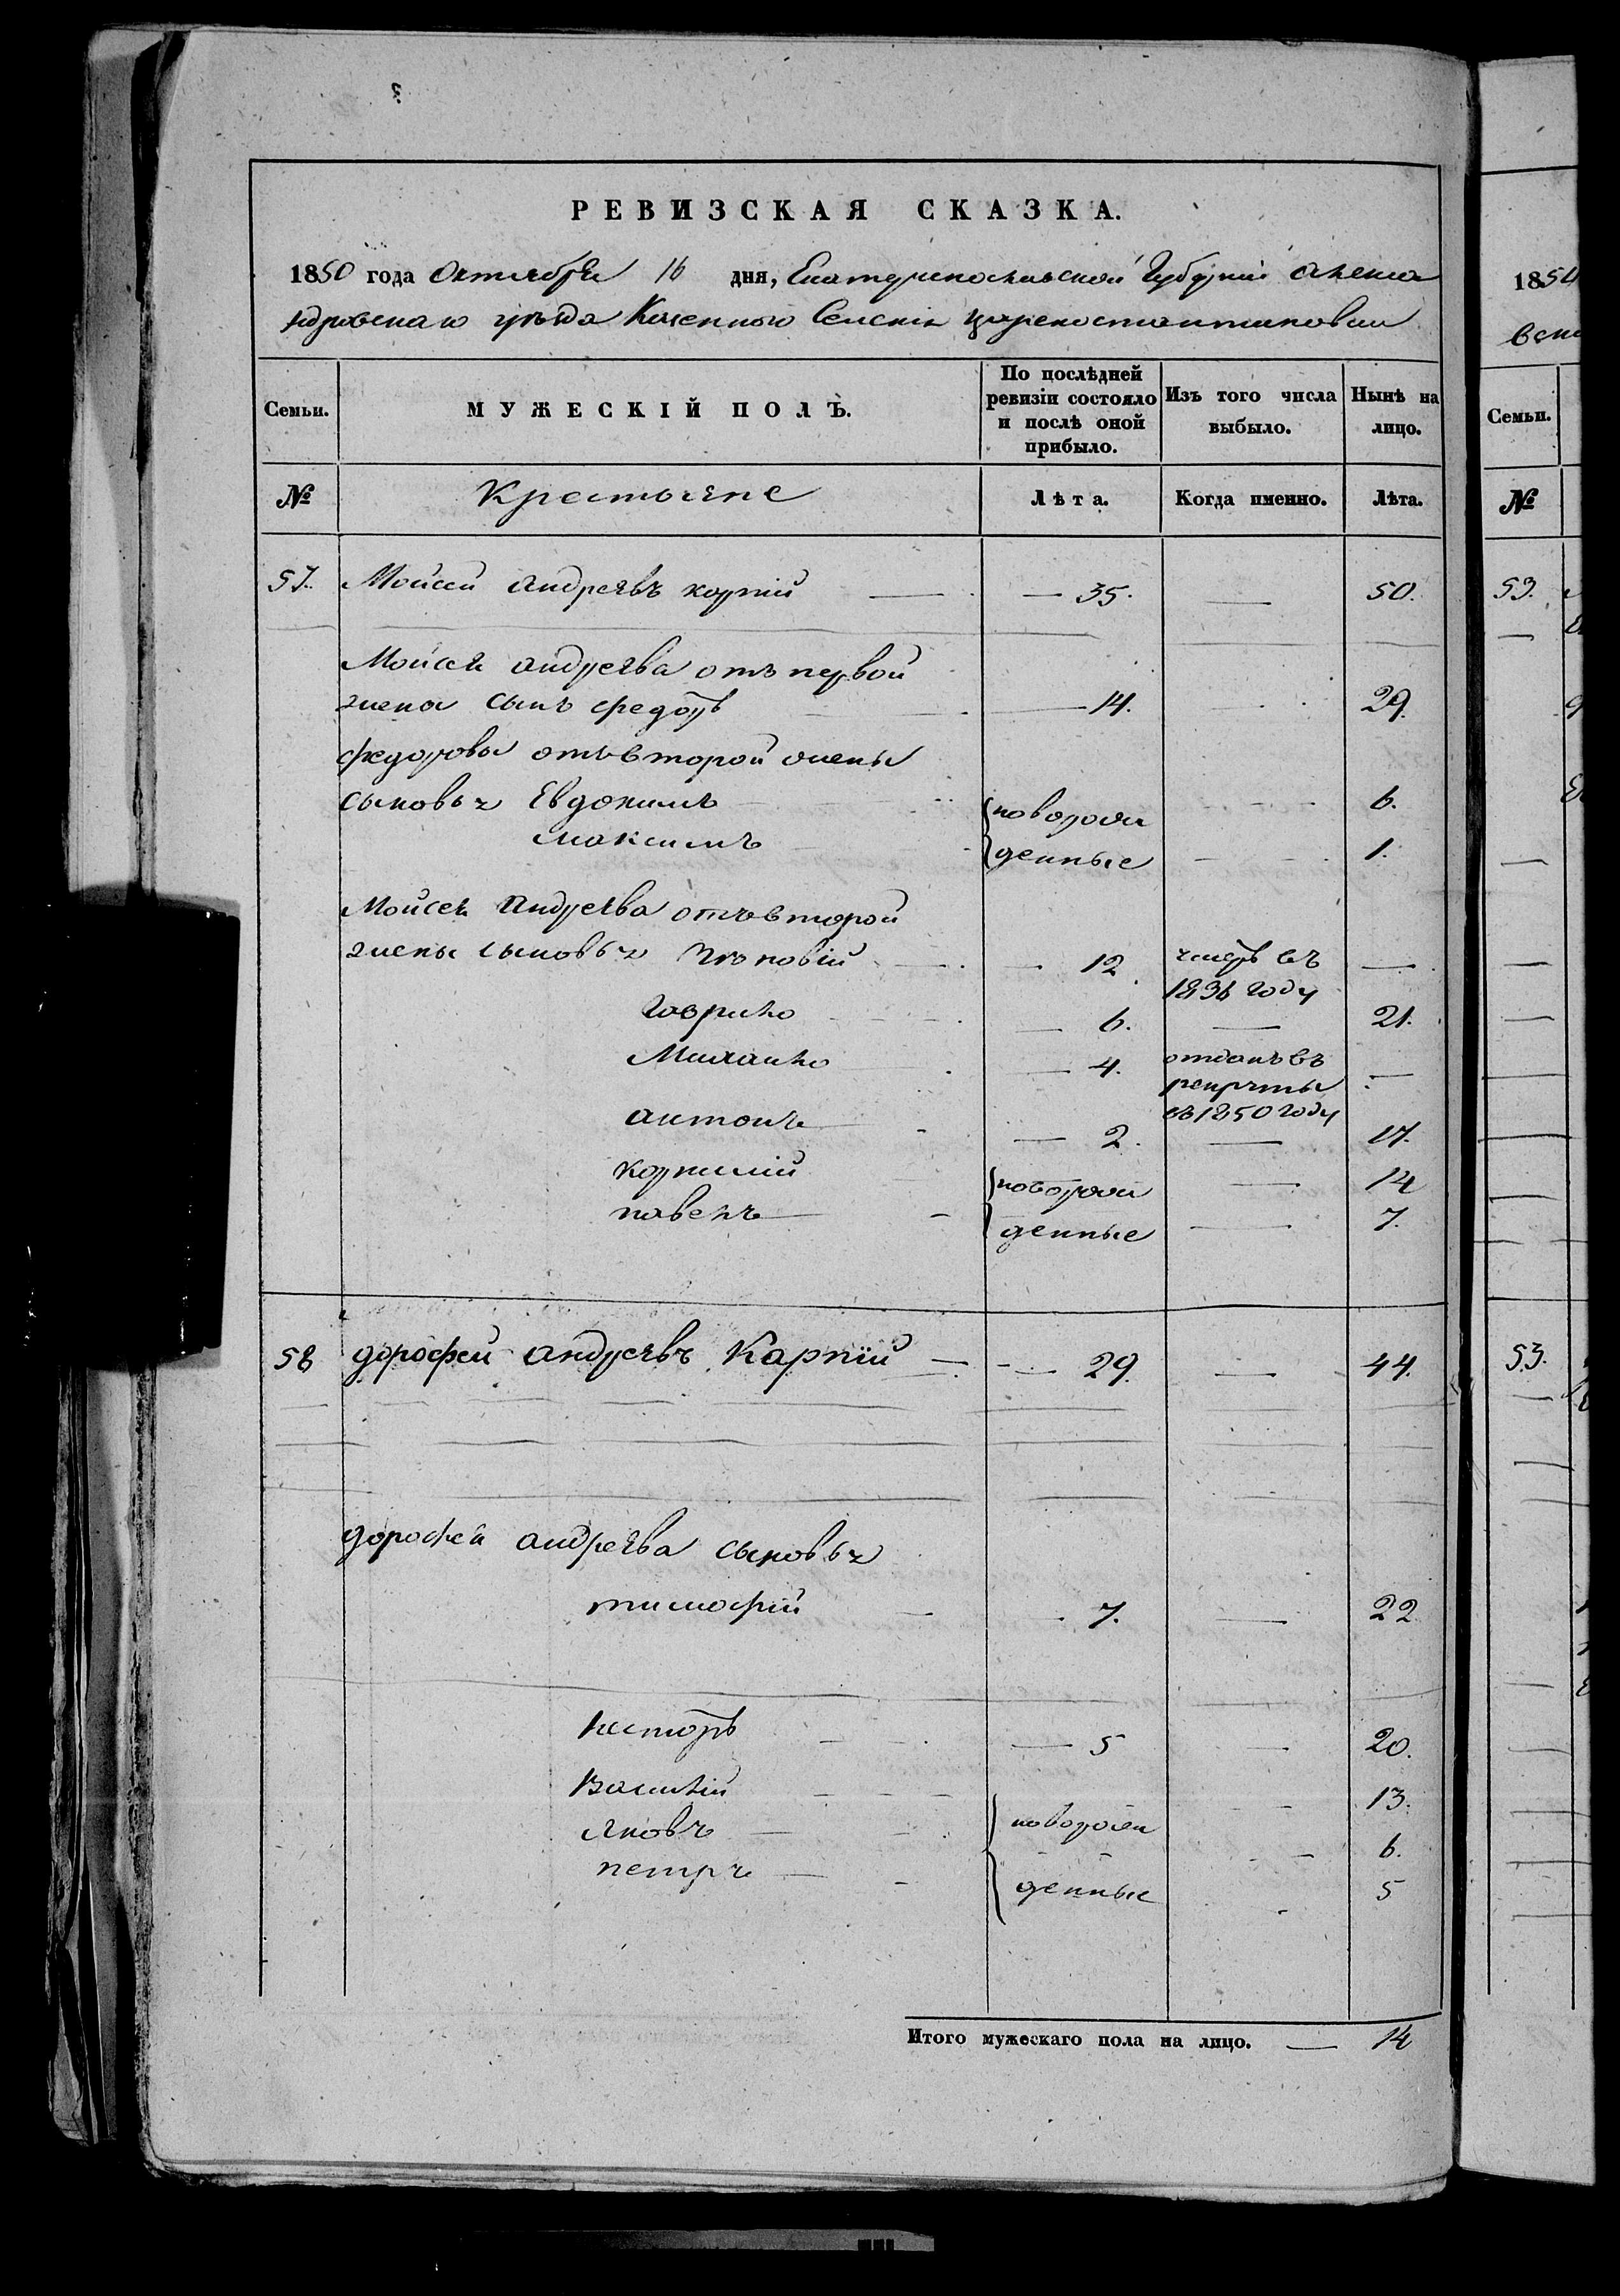 РЕВИЗСКАЯ СКАЗКА.
1850 года Октября 16 дня, Екатеринославской Губернiи Алекса
ндровскаго уѣзда Казенного Селенія Цареконстантиновки
1850
Семьи. МУЖЕСКІЙ ПОЛЪ. По послѣдней ревизіи состояло и послѣ оной прибыло. Изъ того числа выбыло. Нынѣ на лицо.
Семьи.
№ Крестьяне Лѣта. Когда именно. Лѣта.
№
57. Мойсей андреевъ корнiй — 35. — 50.
53.
Мойсея андреева отъ первой
жены сынъ федоръ — 14. 29.
федорова отъ второй жены
сыновья Евдокимъ новорож 6.
максимъ денные 1.
Мойсея Андреева отъ второй
жены сыновья — 12 умеръ въ 1836 году —
гаврило — 6. — 21.
Михайло — 4. отданъ въ рекруты въ 1850 году —
антонъ — 2. — 17.
корнилiй новорож — 14
павелъ денные — 7.
58 дорофей андреевъ Карнiй — 29. — 44.
53.
дорофея андреева сыновья
тимофiй — 7. — 22
несторъ — 5 — 20.
Василiй 13.
Яковъ новорож 6.
петръ денные 5
Итого мужескаго пола на лицо. — 14